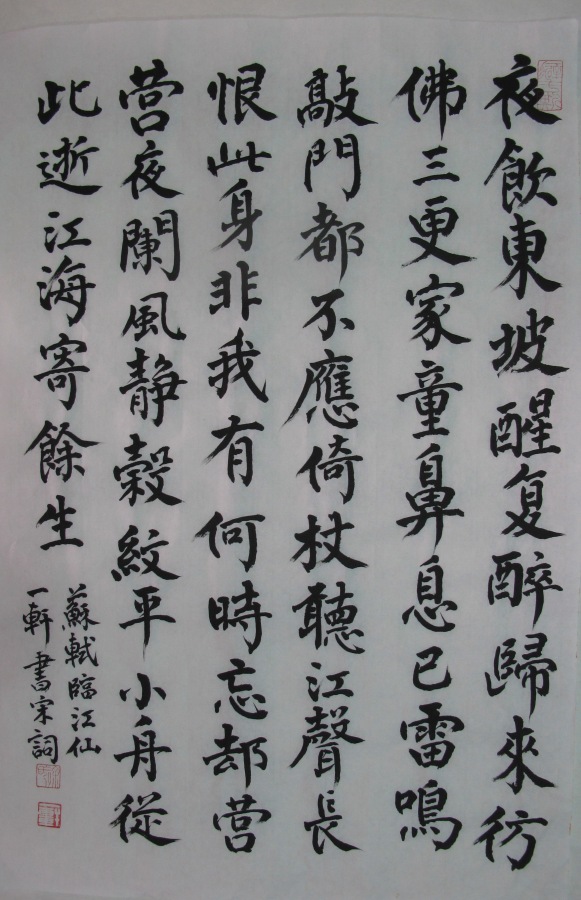 夜飲東坡醒复醉歸來彷
佛三更家童鼻息已雷鳴
敲門都不應倚杖聽江聲長
恨此身非我有何時忘却营
营夜闌風静縠紋平小舟從
此逝江海寄餘生
蘇軾臨江仙
一軒書宋詞